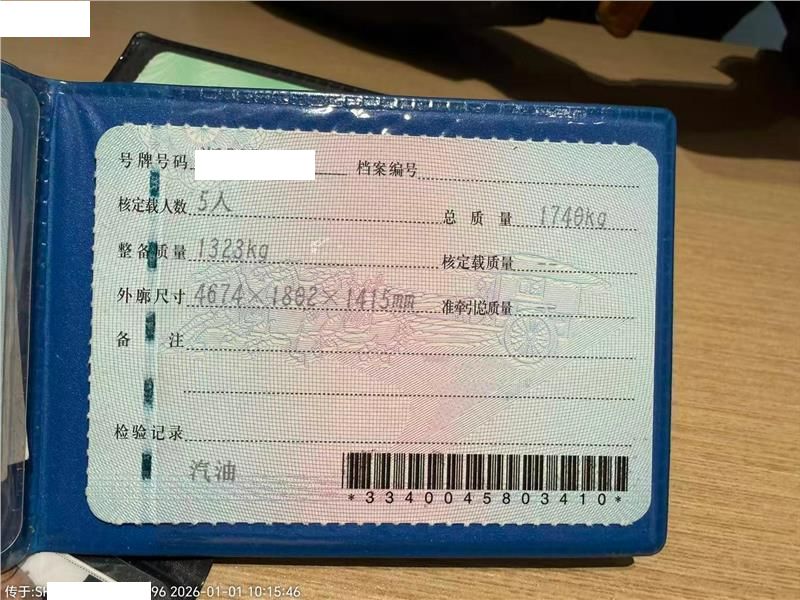 号牌号码 档案编号
核定载人数 5人 总质量 1740kg
整备质量 1323kg 核定载质量 --
外廓尺寸 4674×1802×1415mm 准牵引总质量 --
备注
检验记录
汽油
*3340045803410*
传于:SH 96 2026-01-01 10:15:46